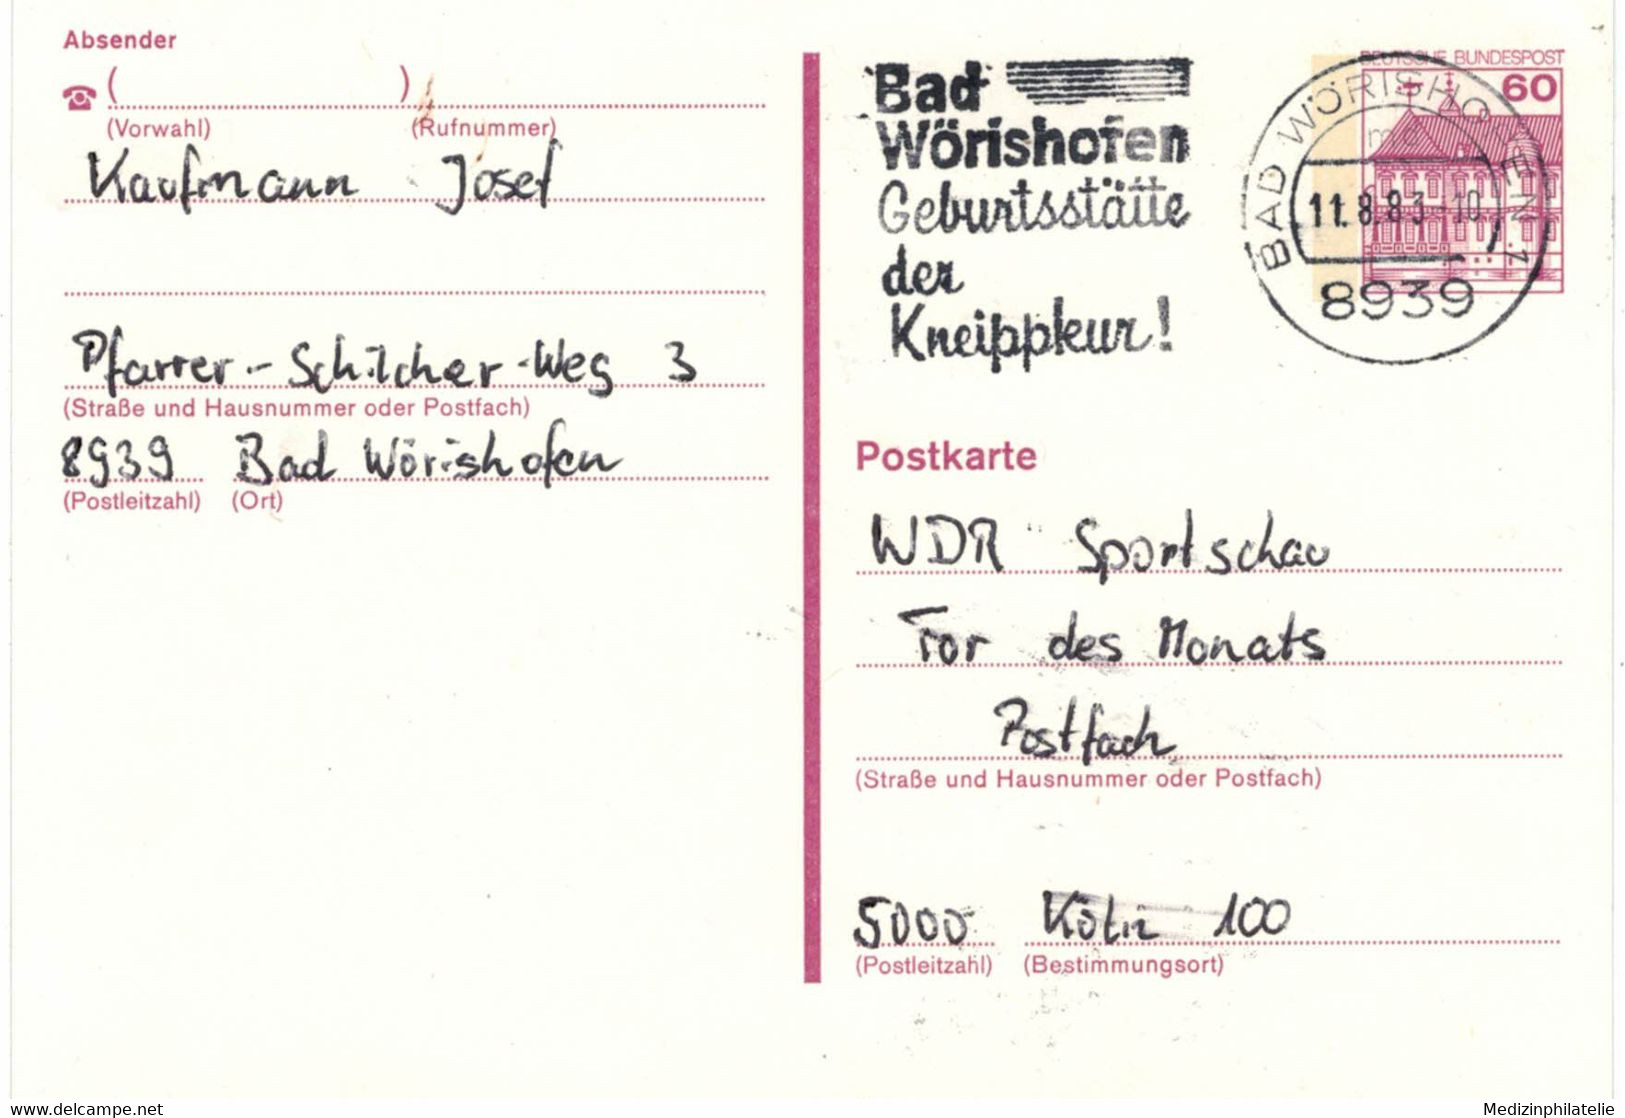 Absender
( )
(Vorwahl) (Rufnummer)
Kaufmann Josef
Pfarrer-Schilcher-Weg 3
(Straße und Hausnummer oder Postfach)
8939 Bad Wörishofen
(Postleitzahl) (Ort)
Bad
Wörishofen
Geburtsstätte
der
Kneippkur!
DEUTSCHE BUNDESPOST
60
BAD WÖRISHOFEN 1
mc
11.8.83-10
8939
Postkarte
WDR Sportschau
Tor des Monats
Postfach
(Straße und Hausnummer oder Postfach)
5000 Köln 100
(Postleitzahl) (Bestimmungsort)
www.delcampe.net
Medizinphilatelie